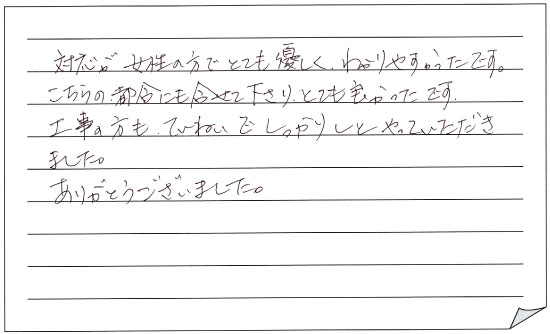 対応が女性の方でとても優しく、わかりやすかったです。
こちらの都合にも合せて下さり、とても良かったです。
工事の方も、ていねいでしっかりしとやっていただき
ました。
ありがとうございました。